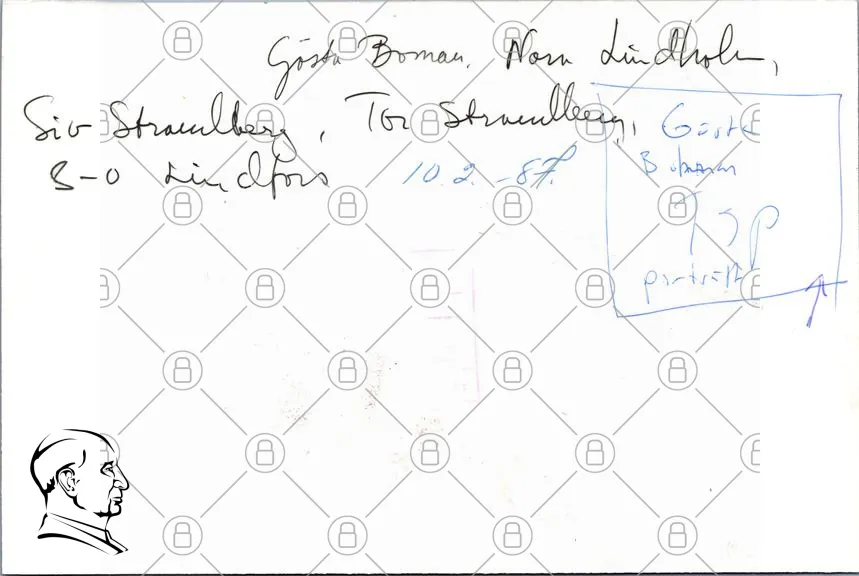 Gösta Boman, Nora Lindholm,
Siv Strandberg, Tor Strandberg,
B-O Lindfors 10.2.-87.
Gösta
Bohman
porträtt